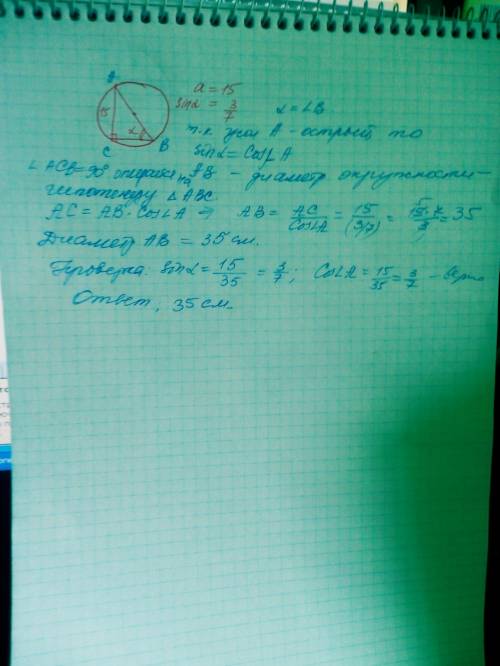 A
15
α
C
B
a = 15
sinα = 3/7
α = ∠B
т.к угол A - острый, то
sinα = cos∠A
∠ACB = 90° опирается на AB - диаметр окружности -
гипотенузу △ABC.
AC = AB · cos∠A ⇒ AB = AC/cos∠A = 15/(3/7) = 15·7/3 = 35
5
1
Диаметр AB = 35 см.
Проверка: sinα = 15/35 = 3/7; cos∠A = 15/35 = 3/7 - верно
Ответ, 35 см.